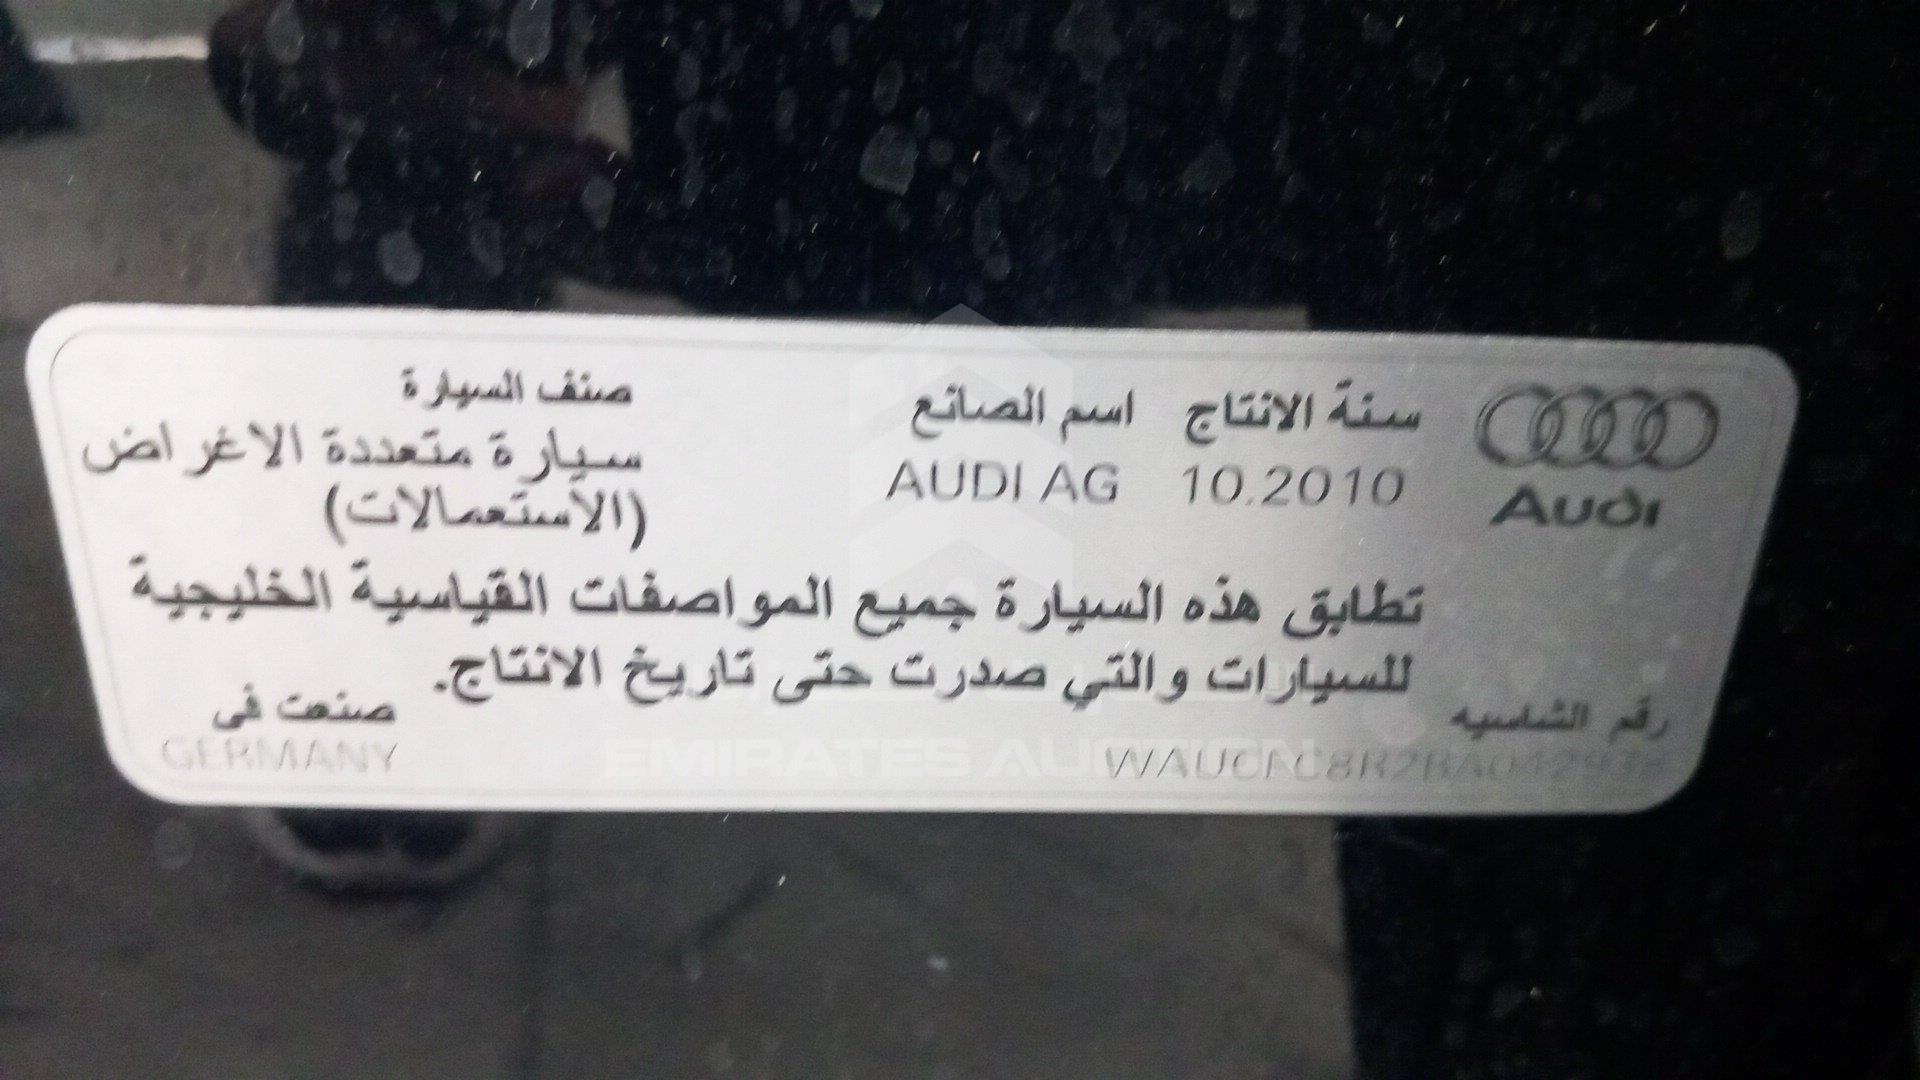 سنة الانتاج
10.2010
اسم الصانع
AUDI AG
صنف السيارة
سيارة متعددة الاغراض
(الأستعمالات)
Audi
تطابق هذه السيارة جميع المواصفات القياسية الخليجية
للسيارات والتي صدرت حتى تاريخ الانتاج.
رقم الشاسيه
صنعت فى
GERMANY
EMIRATES AUCTION